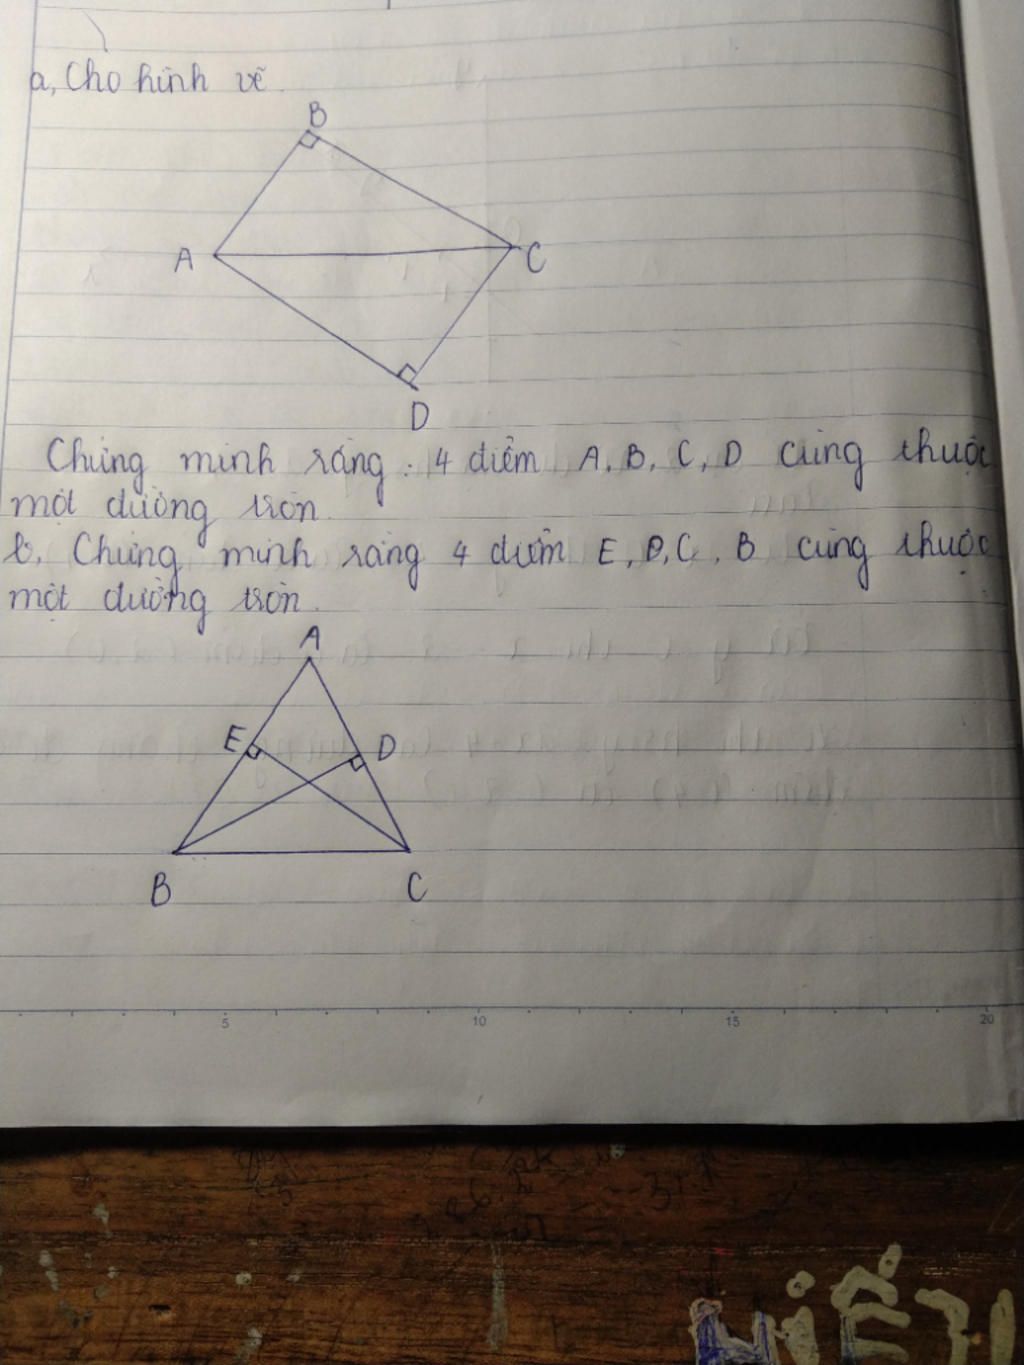 a, Cho hình vẽ.
B
A
C
D
Chứng minh rằng: 4 điểm A, B, C, D cùng thuộc
một đường tròn.
b, Chứng minh rằng 4 điểm E, D, C, B cùng thuộc
một đường tròn.
A
E
D
B
C
5 10 15 20